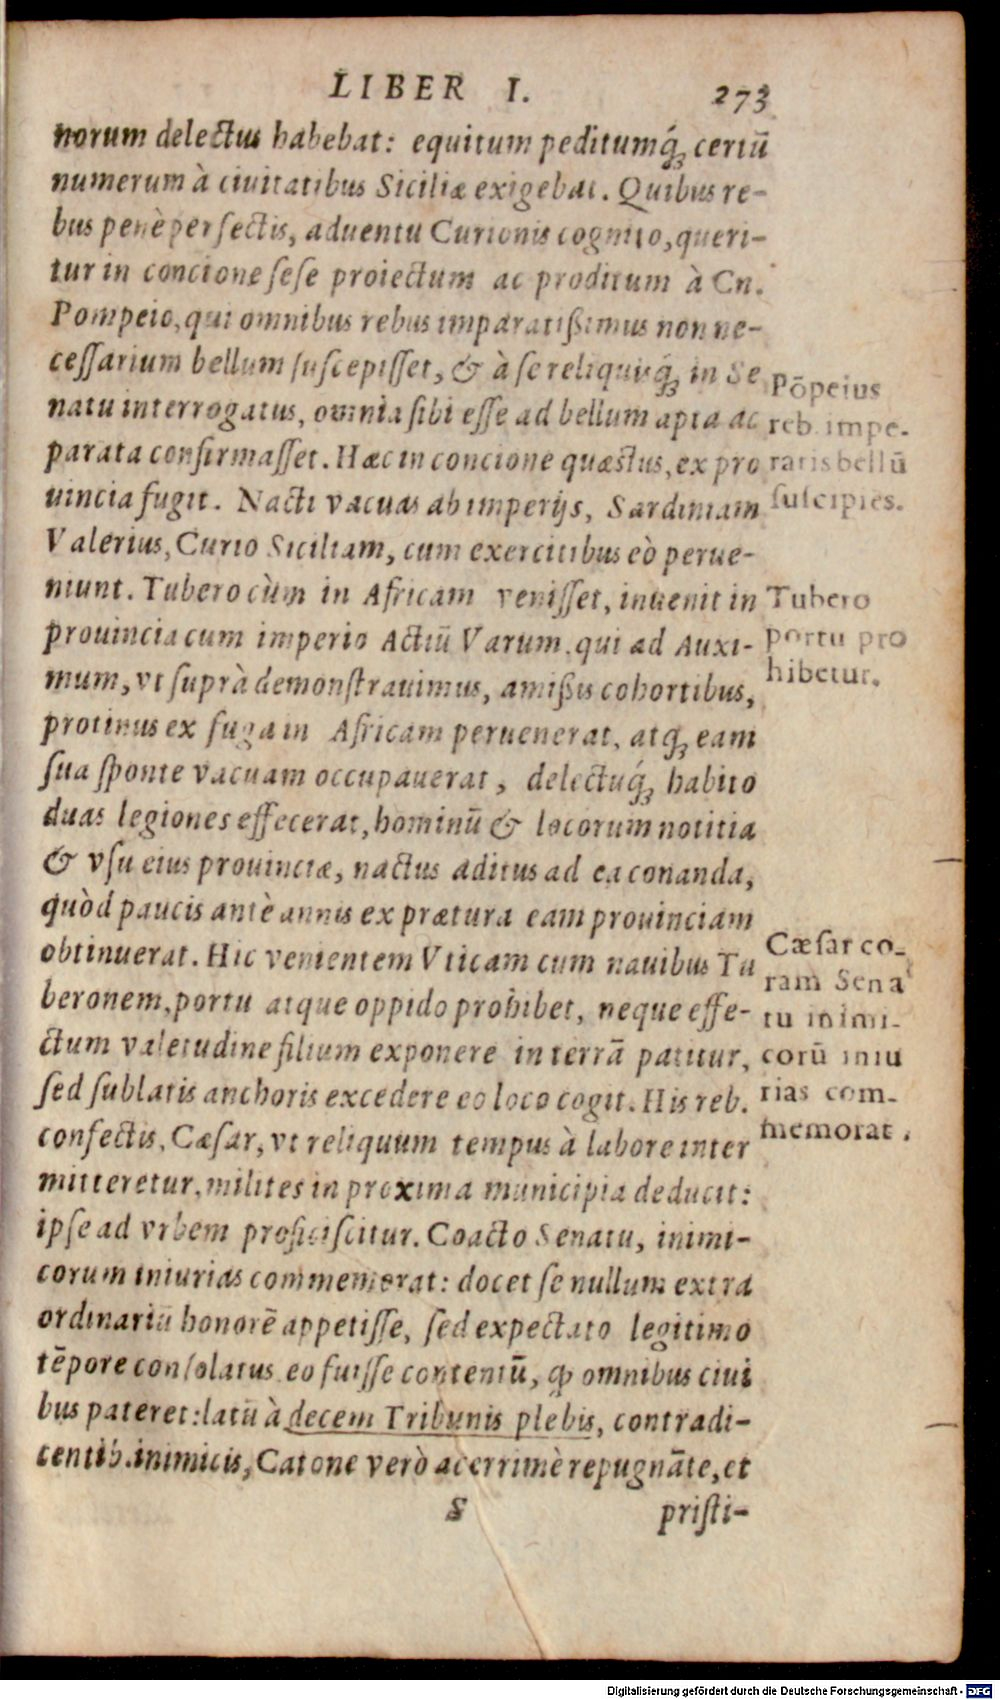 LIBER I. 273
norum delectus habebat: equitum peditumq́ꝫ certū
numerum à ciuitatibus Siciliæ exigebat. Quibus re-
bus penè perfectis, aduentu Curionis cognito, queri-
tur in concione sese proiectum ac proditum à Cn.
Pompeio, qui omnibus rebus imparatißimus non ne-
cessarium bellum suscepisset, & à se reliquisq́ꝫ in Se
natu interrogatus, omnia sibi esse ad bellum apta ac
parata confirmasset. Hæc in concione quæstus, ex pro
uincia fugit. Nacti vacuas ab imperijs, Sardiniam
Valerius, Curio Siciliam, cum exercitibus eò perue-
niunt. Tubero cùm in Africam venisset, inuenit in
prouincia cum imperio Actiū Varum. qui ad Auxi-
mum, vt suprà demonstrauimus, amißis cohortibus,
protinus ex fuga in Africam peruenerat, atqꝫ eam
sua sponte vacuam occupauerat, delectuq́ꝫ habito
duas legiones effecerat, hominū & locorum notitia
& vsu eius prouinciæ, nactus aditus ad ea conanda,
quòd paucis antè annis ex prætura eam prouinciam
obtinuerat. Hic venientem Vticam cum nauibus Tu
beronem, portu atque oppido prohibet, neque effe-
ctum valetudine filium exponere in terrā patitur,
sed sublatis anchoris excedere eo loco cogit. His reb.
confectis, Cæsar, vt reliquum tempus à labore inter
mitteretur, milites in proxima municipia deducit:
ipse ad vrbem proficiscitur. Coacto Senatu, inimi-
corum iniurias commemorat: docet se nullum extra
ordinariū honorē appetisse, sed expectato legitimo
tēpore consolatus eo fuisse contentū, ꝙ omnibus ciui
bus pateret: latū à decem Tribunis plebis, contradi-
centib. inimicis, Catone verò acerrimè repugnāte, et
S pristi-
Pōpeius
reb. impe-
ratis bellū
suscipiēs.
Tubero
portu pro
hibetur.
Cæsar co-
ram Sena
tu inimi-
corū iniu
rias com-
memorat.
Digitalisierung gefördert durch die Deutsche Forschungsgemeinschaft - DFG